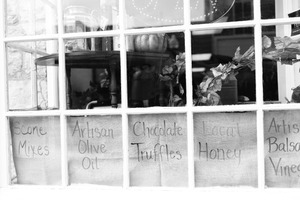 Scone
Mixes
Artisan
Olive
Oil
Chocolate
Truffles
Local
Honey
Artisan
Balsa
Vineg